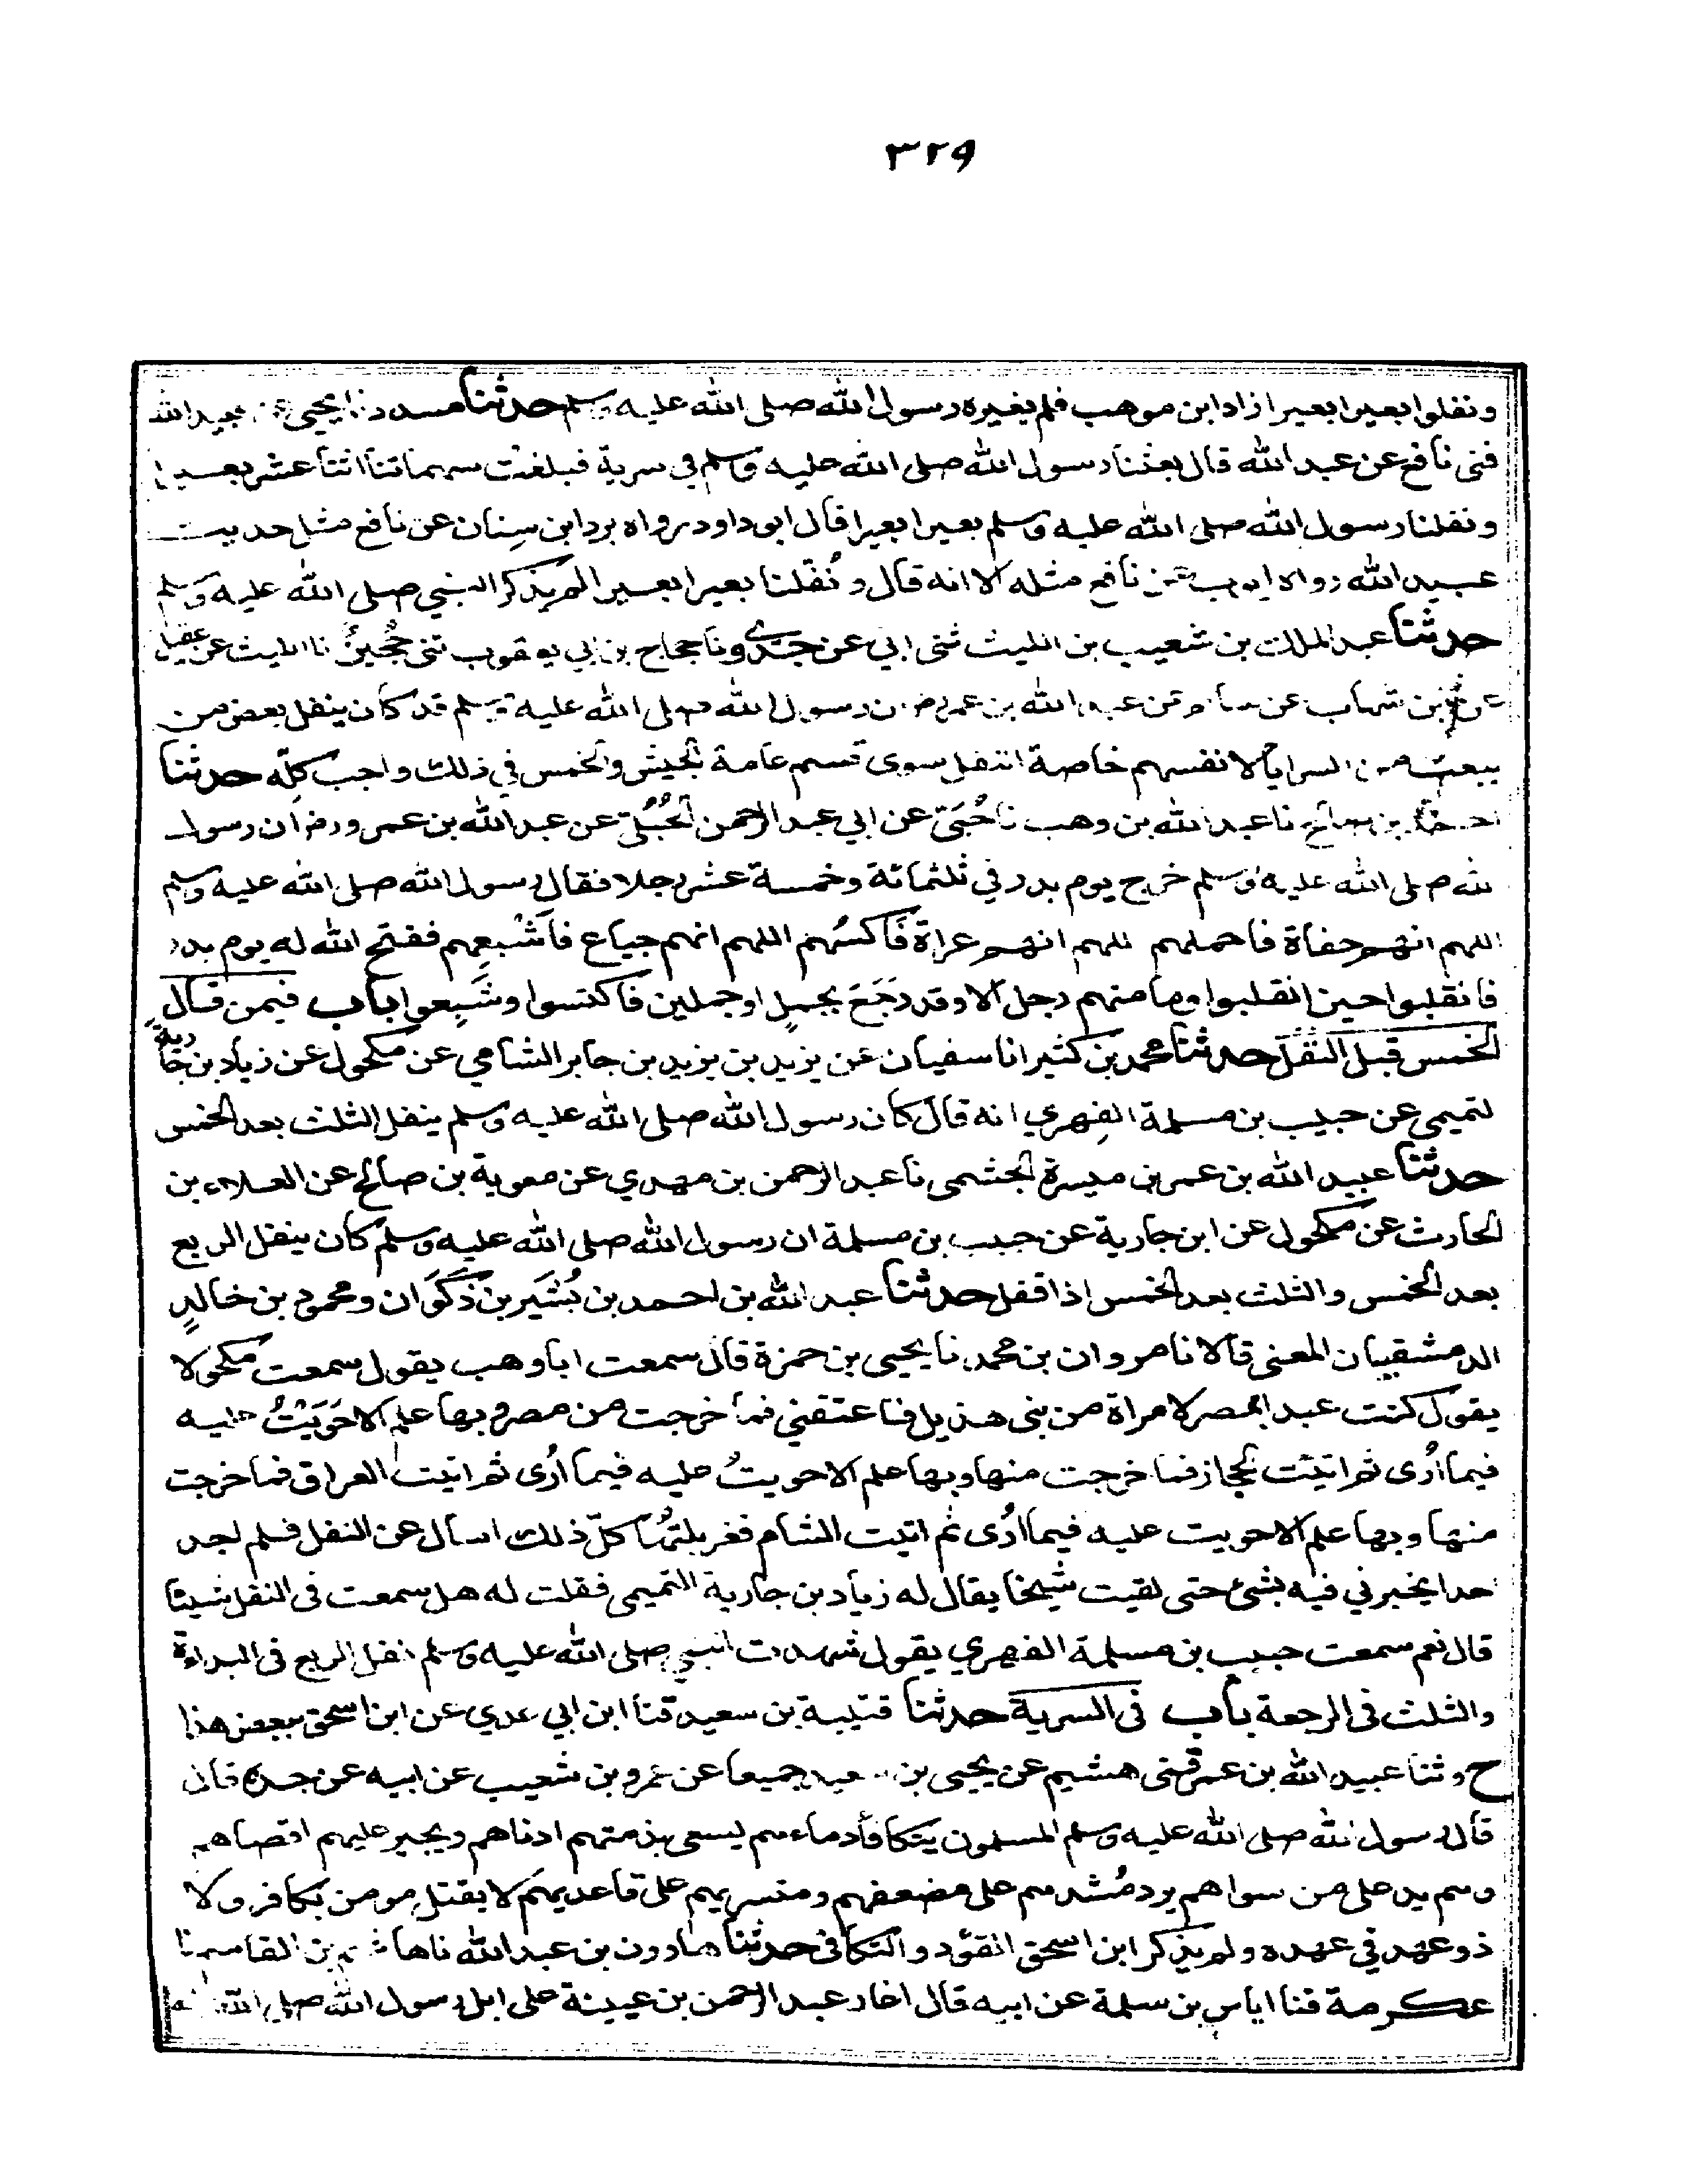 ٣٢٩
ونفلوا بعيرا بعيرا زاد ابن موهب فلم يغيره رسول الله صلى الله عليه وسلم حدثنا مسدد نا يحيى عن عبيد الله
ثنى نافع عن عبد الله قال بعثنا رسول الله صلى الله عليه وسلم في سرية فبلغت سهماننا اثنا عشر بعيرا
ونفلنا رسول الله صلى الله عليه وسلم بعيرا بعيرا قال ابو داود رواه برد ابن سِنان عن نافع مثل حديث
عبيد الله رواه ايوب عن نافع مثله الا انه قال ونُفّلنا بعيرا بعيرا لم يذكر النبي صلى الله عليه وسلم
حدثنا عبد الملك بن شعيب بن الليث ثنى ابي عن جدي ونا حجاج بن ابي يعقوب ثنى حُجَينٌ نا الليث عن عقيل
عن ابن شهاب عن سالم عن عبد الله بن عمر رض ان رسول الله صلى الله عليه وسلم قد كان ينفل بعض من
يبعث من السرايا لانفسهم خاصة النفل سوى قسم عامة الجيش والخمس في ذلك واجب كلّه حدثنا
احمد بن صالح نا عبد الله بن وهب نا حُيَىّ عن ابي عبد الرحمن الحُبُلّى عن عبد الله بن عمرو رض ان رسول
الله صلى الله عليه وسلم خرج يوم بدر في ثلثمائة وخمسة عشر رجلا فقال رسول الله صلى الله عليه وسلم
اللهم انهم حفاة فاحملهم اللهم انهم عراة فَاكسُهُم اللهم انهم جياع فاَشْبِعهم ففتح الله له يوم بدر
فانقلبوا حين انقلبوا وما منهم رجل الا وقد رَجَعَ بجملٍ او جملين فاكتسوا وشَبِعوا باب فيمن قال
الخمس قبل النفل حدثنا محمد بن كثير انا سفيان عن يزيد بن يزيد بن جابر الشامي عن مكحول عن زياد بن جارية
التميمي عن حبيب بن مسلمة الفهري انه قال كان رسول الله صلى الله عليه وسلم ينفل الثلث بعد الخمس
حدثنا عبيد الله بن عمر بن ميسرة الجشمى نا عبد الرحمن بن مهدي عن معوية بن صالح عن العلاء بن
الحارث عن مكحول عن ابن جارية عن حبيب بن مسلمة ان رسول الله صلى الله عليه وسلم كان ينفل الربع
بعد الخمس والثلث بعد الخمس اذا قفل حدثنا عبد الله بن احمد بن بُشَير بن ذَكْوَان ومحمود بن خالدٍ
الدمشقيان المعنى قالا نا مروان بن محمد نا يحيى بن حمزة قال سمعت ابا وهب يقول سمعت مكحولا
يقول كنت عبدا بمصر لامراة من بنى هذيل فاعتقتني فما خرجت من مصر وبها علم الا حَوَيْتُ عليه
فيما اُرى ثم اتيت الحجاز فما خرجت منها وبها علم الا حويتُ عليه فيما اُرى ثم اتيت العراق فما خرجت
منها وبها علم الا حويت عليه فيما اُرى ثم اتيت الشام فغربلتُها كلّ ذلك اسال عن النفل فلم اجد
احدا يخبرني فيه بشئ حتى لقيت شيخا يقال له زياد بن جارية التميمى فقلت له هل سمعت فى النفل شيئا
قال نعم سمعت حبيب بن مسلمة الفهري يقول شهدت النبي صلى الله عليه وسلم نفل الربع فى البداءة
والثلث فى الرجعة باب فى السرية حدثنا قتيبة بن سعيد قثنا ابن ابي عدي عن ابن اسحق ببعض هذا
ح وثنا عبيد الله بن عمر قثنى هشيم عن يحيى بن سعيد جميعا عن عمرو بن شعيب عن ابيه عن جده قال
قال رسول الله صلى الله عليه وسلم المسلمون يتكافأ دماءهم ليسعى بذمتهم ادناهم ويجير عليهم اقصاهم
وهم يد على من سواهم يرد مُشدهم على مضعفهم ومتسريهم على قاعديهم لا يقتل مومن بكافر ولا
ذو عهد في عهده ولم يذكر ابن اسحق القوَد والتكافى حدثنا هارون بن عبد الله نا هاشم بن القاسم نا
عكرمة قثنا اياس بن سلمة عن ابيه قال اغار عبد الرحمن بن عيينة على ابل رسول الله صلى الله